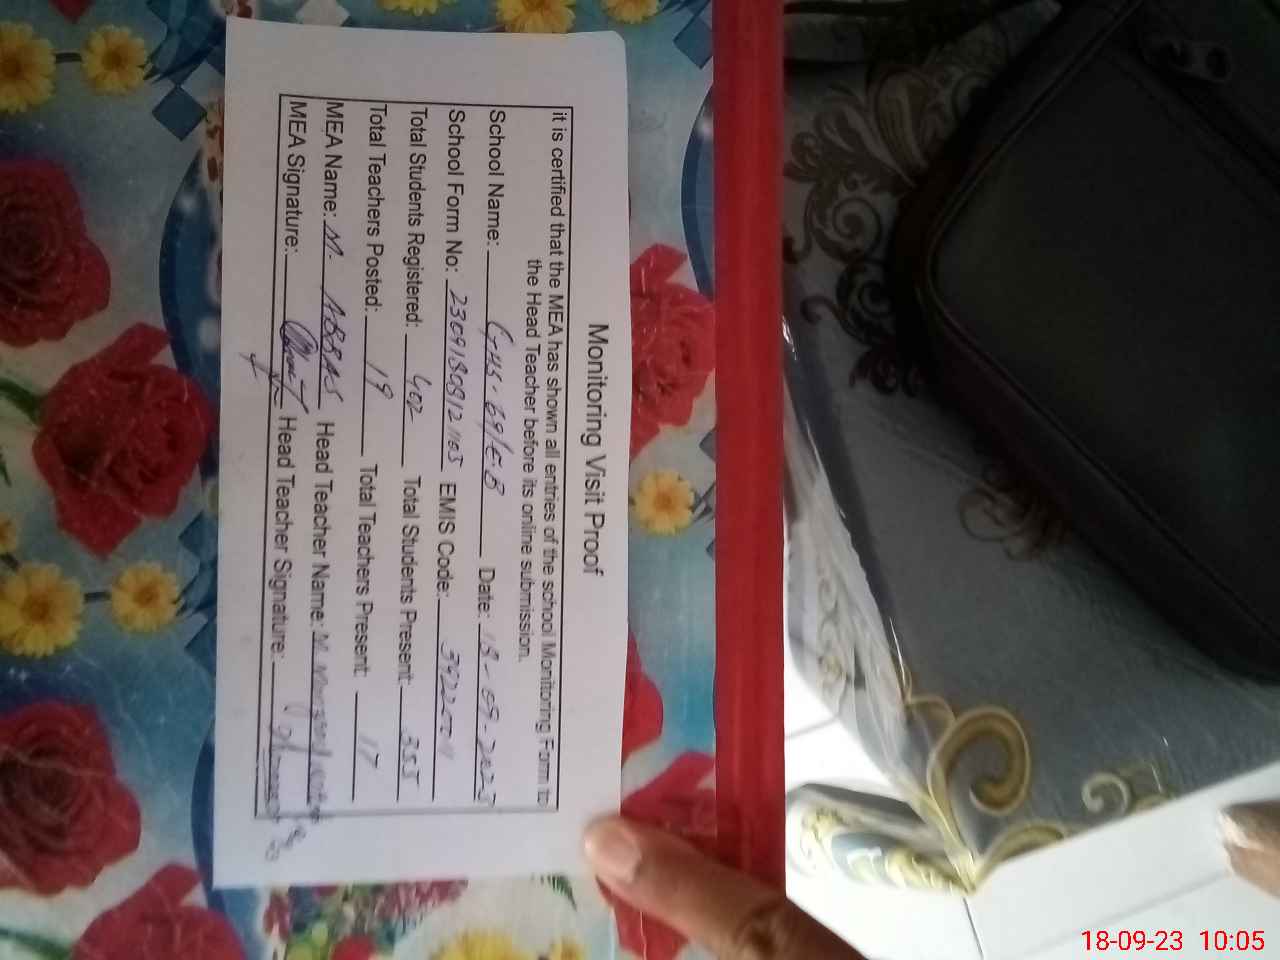 Monitoring Visit Proof
it is certified that the MEA has shown all entries of the school Monitoring Form to
the Head Teacher before its online submission.
School Name: GHS-69/E.B Date: 18-09-2023
School Form No: 23091808121103 EMIS Code:
Total Students Registered: 402 Total Students Present: 355
Total Teachers Posted: 19 Total Teachers Present: 17
MEA Name: M. ABBAS Head Teacher Name: M.
MEA Signature: Head Teacher Signature:
18-09-23 10:05